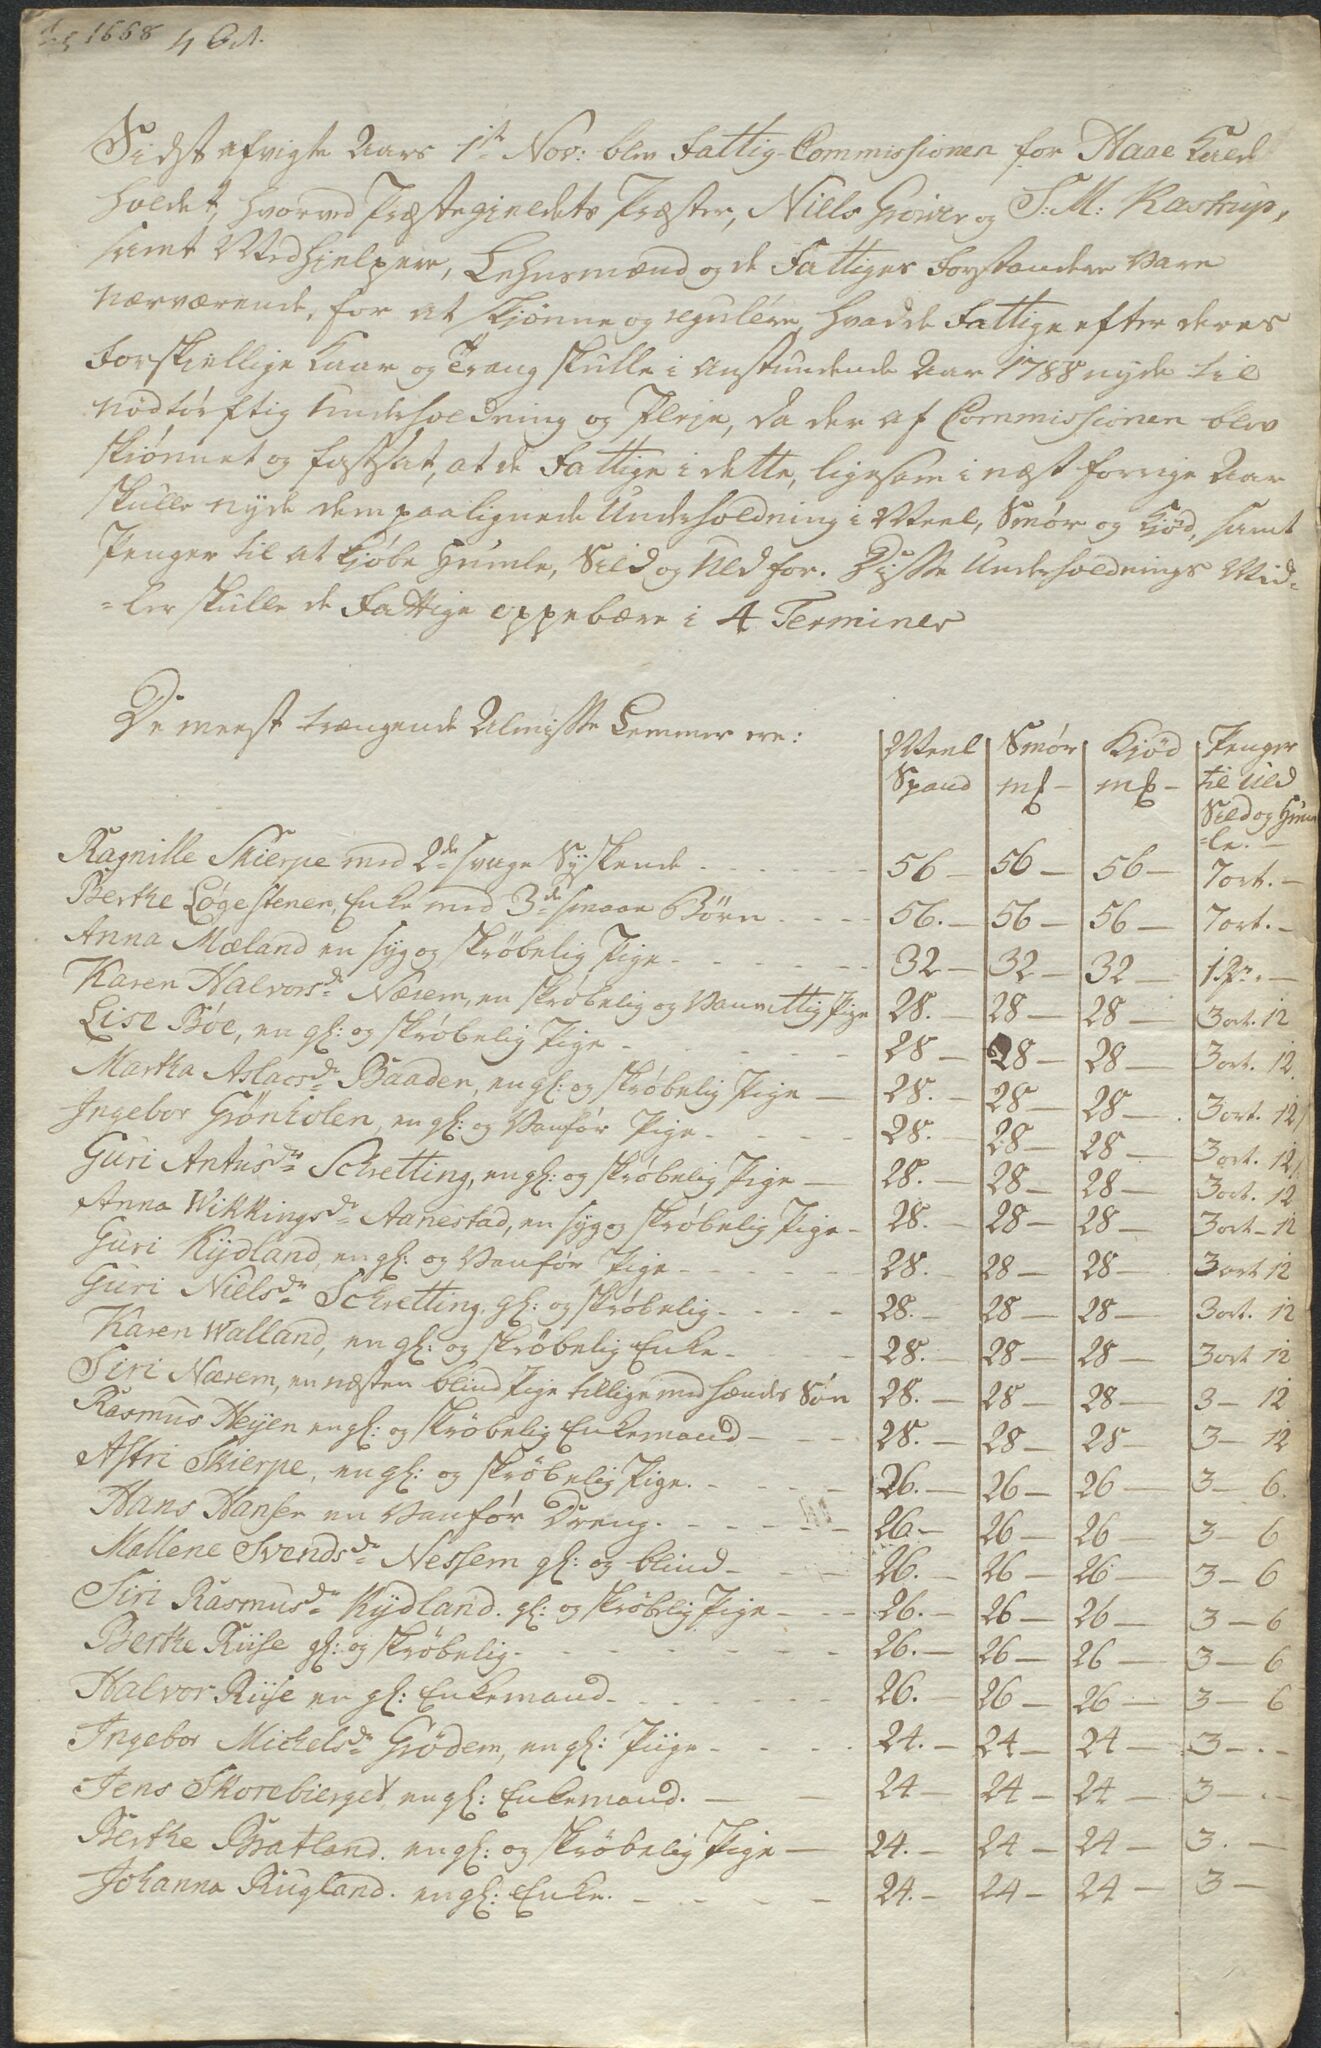 1668 4 Oct.
Sidst afvigte Aars 1ste Nov: blev Fattig-Commissionen for Haae Kald
holdet, hvorved Præstegieldets Præster, Niels Groiver og S: M: Kastrup,
samt Medhielpere, Lehnsmænd og de Fattiges Forstandere vare
nærværende, for at skiønne og regulere, hvad de Fattige efter deres
Forskiellige Kaar og Trang skulle i anstundende Aar 1788 nyde til
nødtørftig Underholdning og Pleje, da der af Commissionen blev
skiønnet og fastsat, at de Fattige i dette, ligesom i næst forrige Aar
skulle nyde dem paalignede Underholdning i Meel, Smør og Kiød, samt
Penger til at kiøbe Humle, Sild og Uld for. Disse Underholdnings Mid=
=ler skulle de Fattige oppebære i 4 Terminer
De meest trængende Almisse Lemmer ere: Meel Smør Kiød Penger
Spand mk – mk – til Uld
Sild og Hum
=le. –
Ragnille Skierpe med 2de svage Syskende - - - 56 – 56 – 56 – 7 ort. –
Berthe Løgestenen, Enke med 3de smaae Børn - - - 56. – 56 – 56 – 7 ort. –
Anna Mæland en syg og skrøbelig Pige - - - 32 – 32 – 32 – 1
Karen Halvorsdr Næsem, en skrøbelig og Vanvittig Pige 28. – 28 – 28 – 3 ort. 12
Lise Bøe, en gl: og skrøbelig Pige - - - 28 – 28 – 28 – 3 ort. 12.
Martha Aslacsdr Baaden, en gl: og skrøbelig Pige – 28. – 28 – 28 – 3 ort. 12
Ingebor Grønholen, en gl: og Vanfør Pige - - - 28. – 28 – 28 – 3 ort. 12
Guri Antusdr Schretting, en gl: og skrøbelig Pige – 28. – 28 – 28 – 3 ort. 12
Anna Wikkingsdr Aanestad, en syg og skrøbelig Pige – 28. – 28 – 28 – 3 ort – 12
Guri Kydland, en gl: og Vanfør Pige - - - 28. – 28 – 28 – 3 ort 12
Guri Nielsdr Schretting, gl: og skrøbelig - - - 28. – 28 – 28 – 3 ort. 12
Karen Walland, en gl: og skrøbelig Enke - - - 28. – 28 – 28 – 3 ort 12
Siri Næsem, en næsten blind Pige tillige med hendes Søn 28. – 28 – 28 – 3 – 12
Rasmus Heijen en gl: og skrøbelig Enkemand - - - 28. – 28 – 28 – 3 – 12
Astri Skierpe, en gl: og skrøbelig Pige. - - - 26. – 26 – 26 – 3 – 6.
Hans Hansen en Vanfør Dreng. - - - 26 – 26 – 26 – 3 – 6
Mallene Svendsdr Nessem gl: og blind - - - 26. – 26 – 26 – 3 – 6
Siri Rasmusdr Kydland. gl: og skrøblig Pige - - - 26. – 26 – 26 – 3 – 6
Berthe Riise gl: og skrøbelig - - - 26. – 26 – 26 – 3 – 6
Halvor Riise en gl: Enkemand - - - 26. – 26 – 26 – 3 – 6
Ingebor Michelsdr Grødem, en gl: Piige - - - 24. – 24 – 24 – 3 – . –
Jens Skorebierget, en gl: Enkemand. – – 24 – 24 – 24 – 3 – . –
Berthe Bratland. en gl: og skrøbelig Pige – 24. – 24 – 24 – 3. –
Johanna Rugland. en gl: Enke. - - - 24. – 24 – 24 – 3 –